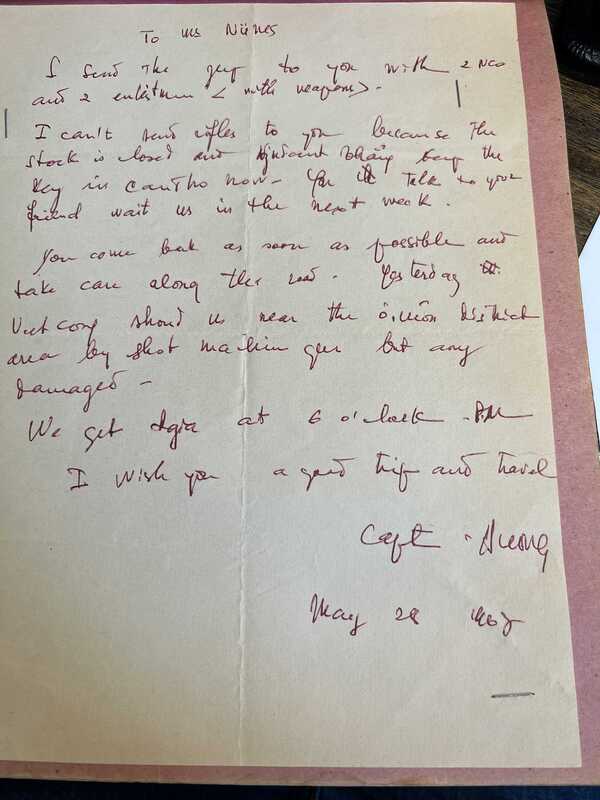 To Ms Nünes
I send the jeep to you with 2 NCO
and 2 enlistmen < with weapons > .
I can't send rifles to you because the
stock is closed and Adjudant Thắng keep the
key in Cantho now - You talk to your
friend wait us in the next week .
You come bak as soon as possible and
take care along the road . Yesterday
Viet cong should us near the ômôn District
area by shot machin gun but any
damaged -
We get at 6 o'clock PM
I wish you a good trip and travel
Capt . Huong
May 28